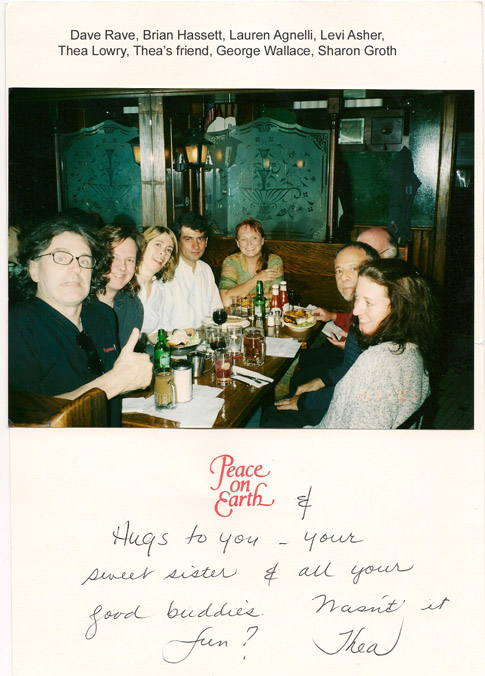 Dave Rave, Brian Hassett, Lauren Agnelli, Levi Asher,
Thea Lowry, Thea's friend, George Wallace, Sharon Groth
Peace
on
Earth &
Hugs to you – your
sweet sister & all your
good buddies. Wasn't it
fun? Thea